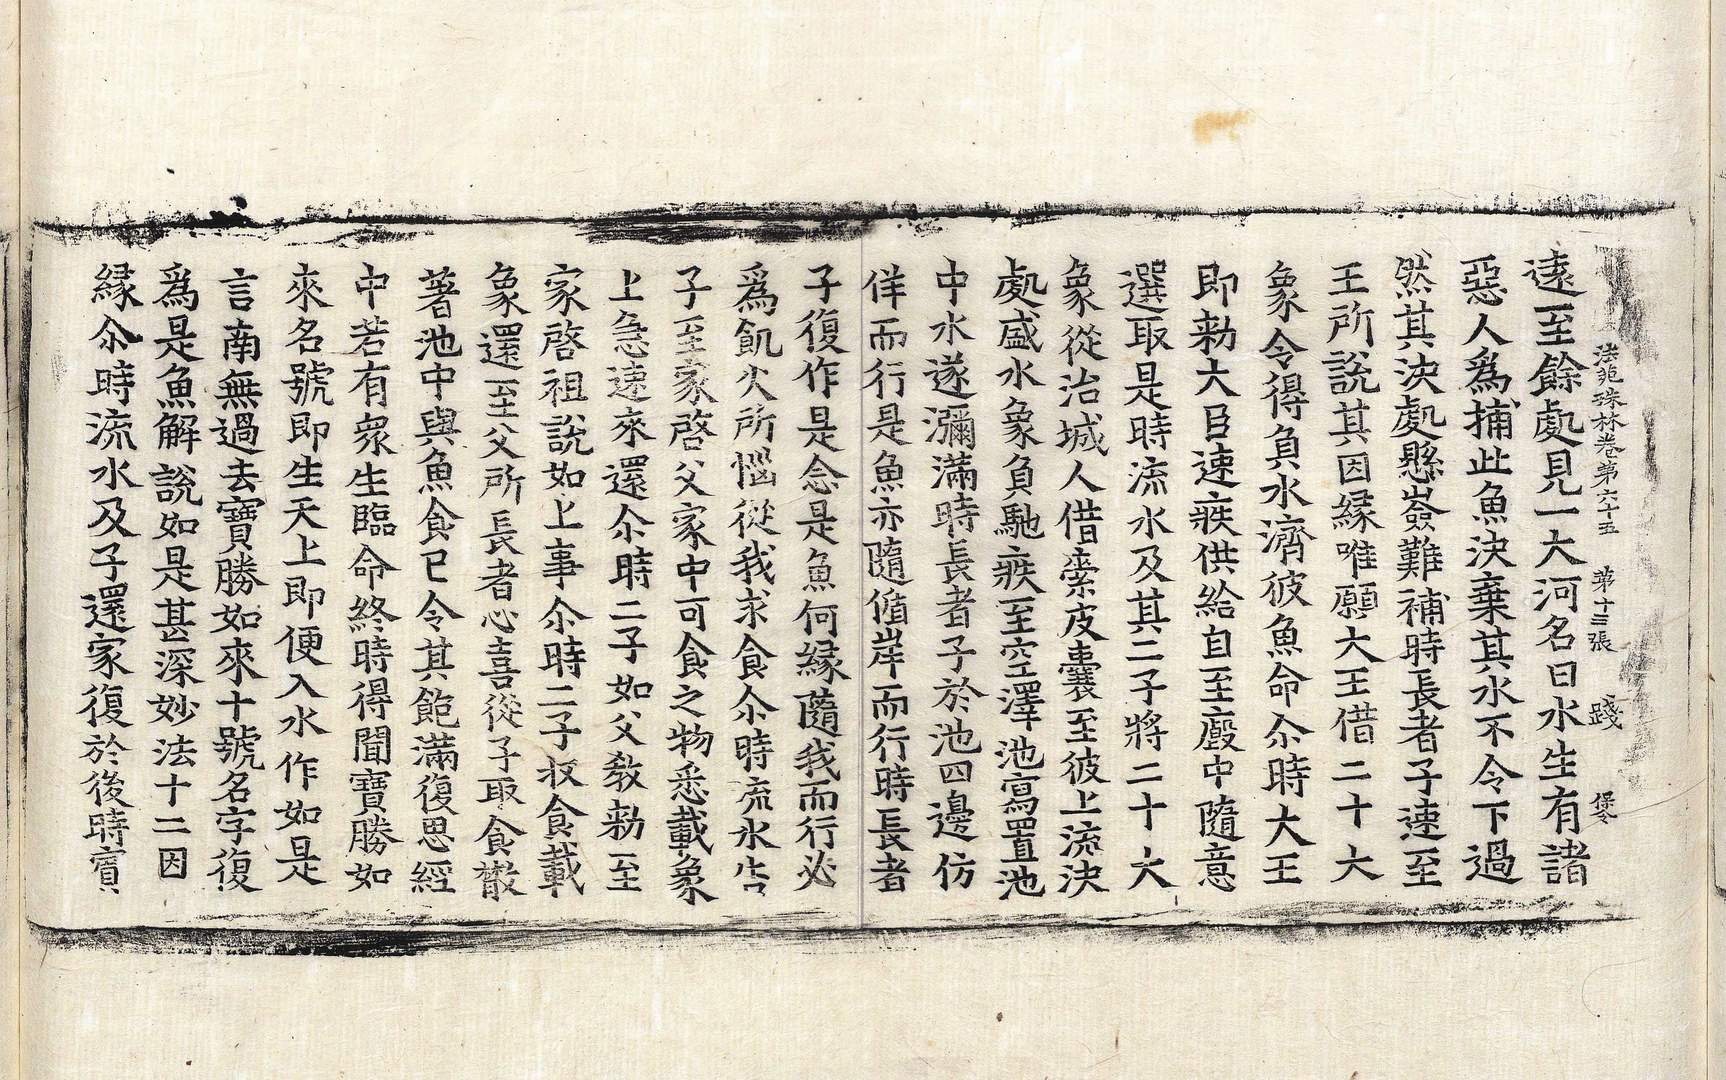 法苑珠林卷第六十五　第十三張　踐　堡令
遠至餘處見一大河名曰水生有諸
惡人爲捕此魚決棄其水不令下過
然其決處懸嶮難補時長者子速至
王所說其因緣唯願大王借二十大
象令得負水濟彼魚命尒時大王
即勅大臣速疾供給自至廄中隨意
選取是時流水及其二子將二十大
象從治城人借索皮囊至彼上流決
處盛水象負馳疾至空澤池寫置池
中水遂彌滿時長者子於池四邊仿
佯而行是魚亦隨循岸而行時長者
子復作是念是魚何緣隨我而行必
爲飢火所惱從我求食尒時流水告
子至家啓父家中可食之物悉載象
上急速來還尒時二子如父教勅至
家啓祖說如上事尒時二子扠食載
象還至父所長者心喜從子取食散
著池中與魚食已令其飽滿復思經
中若有衆生臨命終時得聞寶勝如
來名號即生天上即便入水作如是
言南無過去寶勝如來十號名字復
爲是魚解說如是甚深妙法十二因
緣尒時流水及子還家復於後時賓